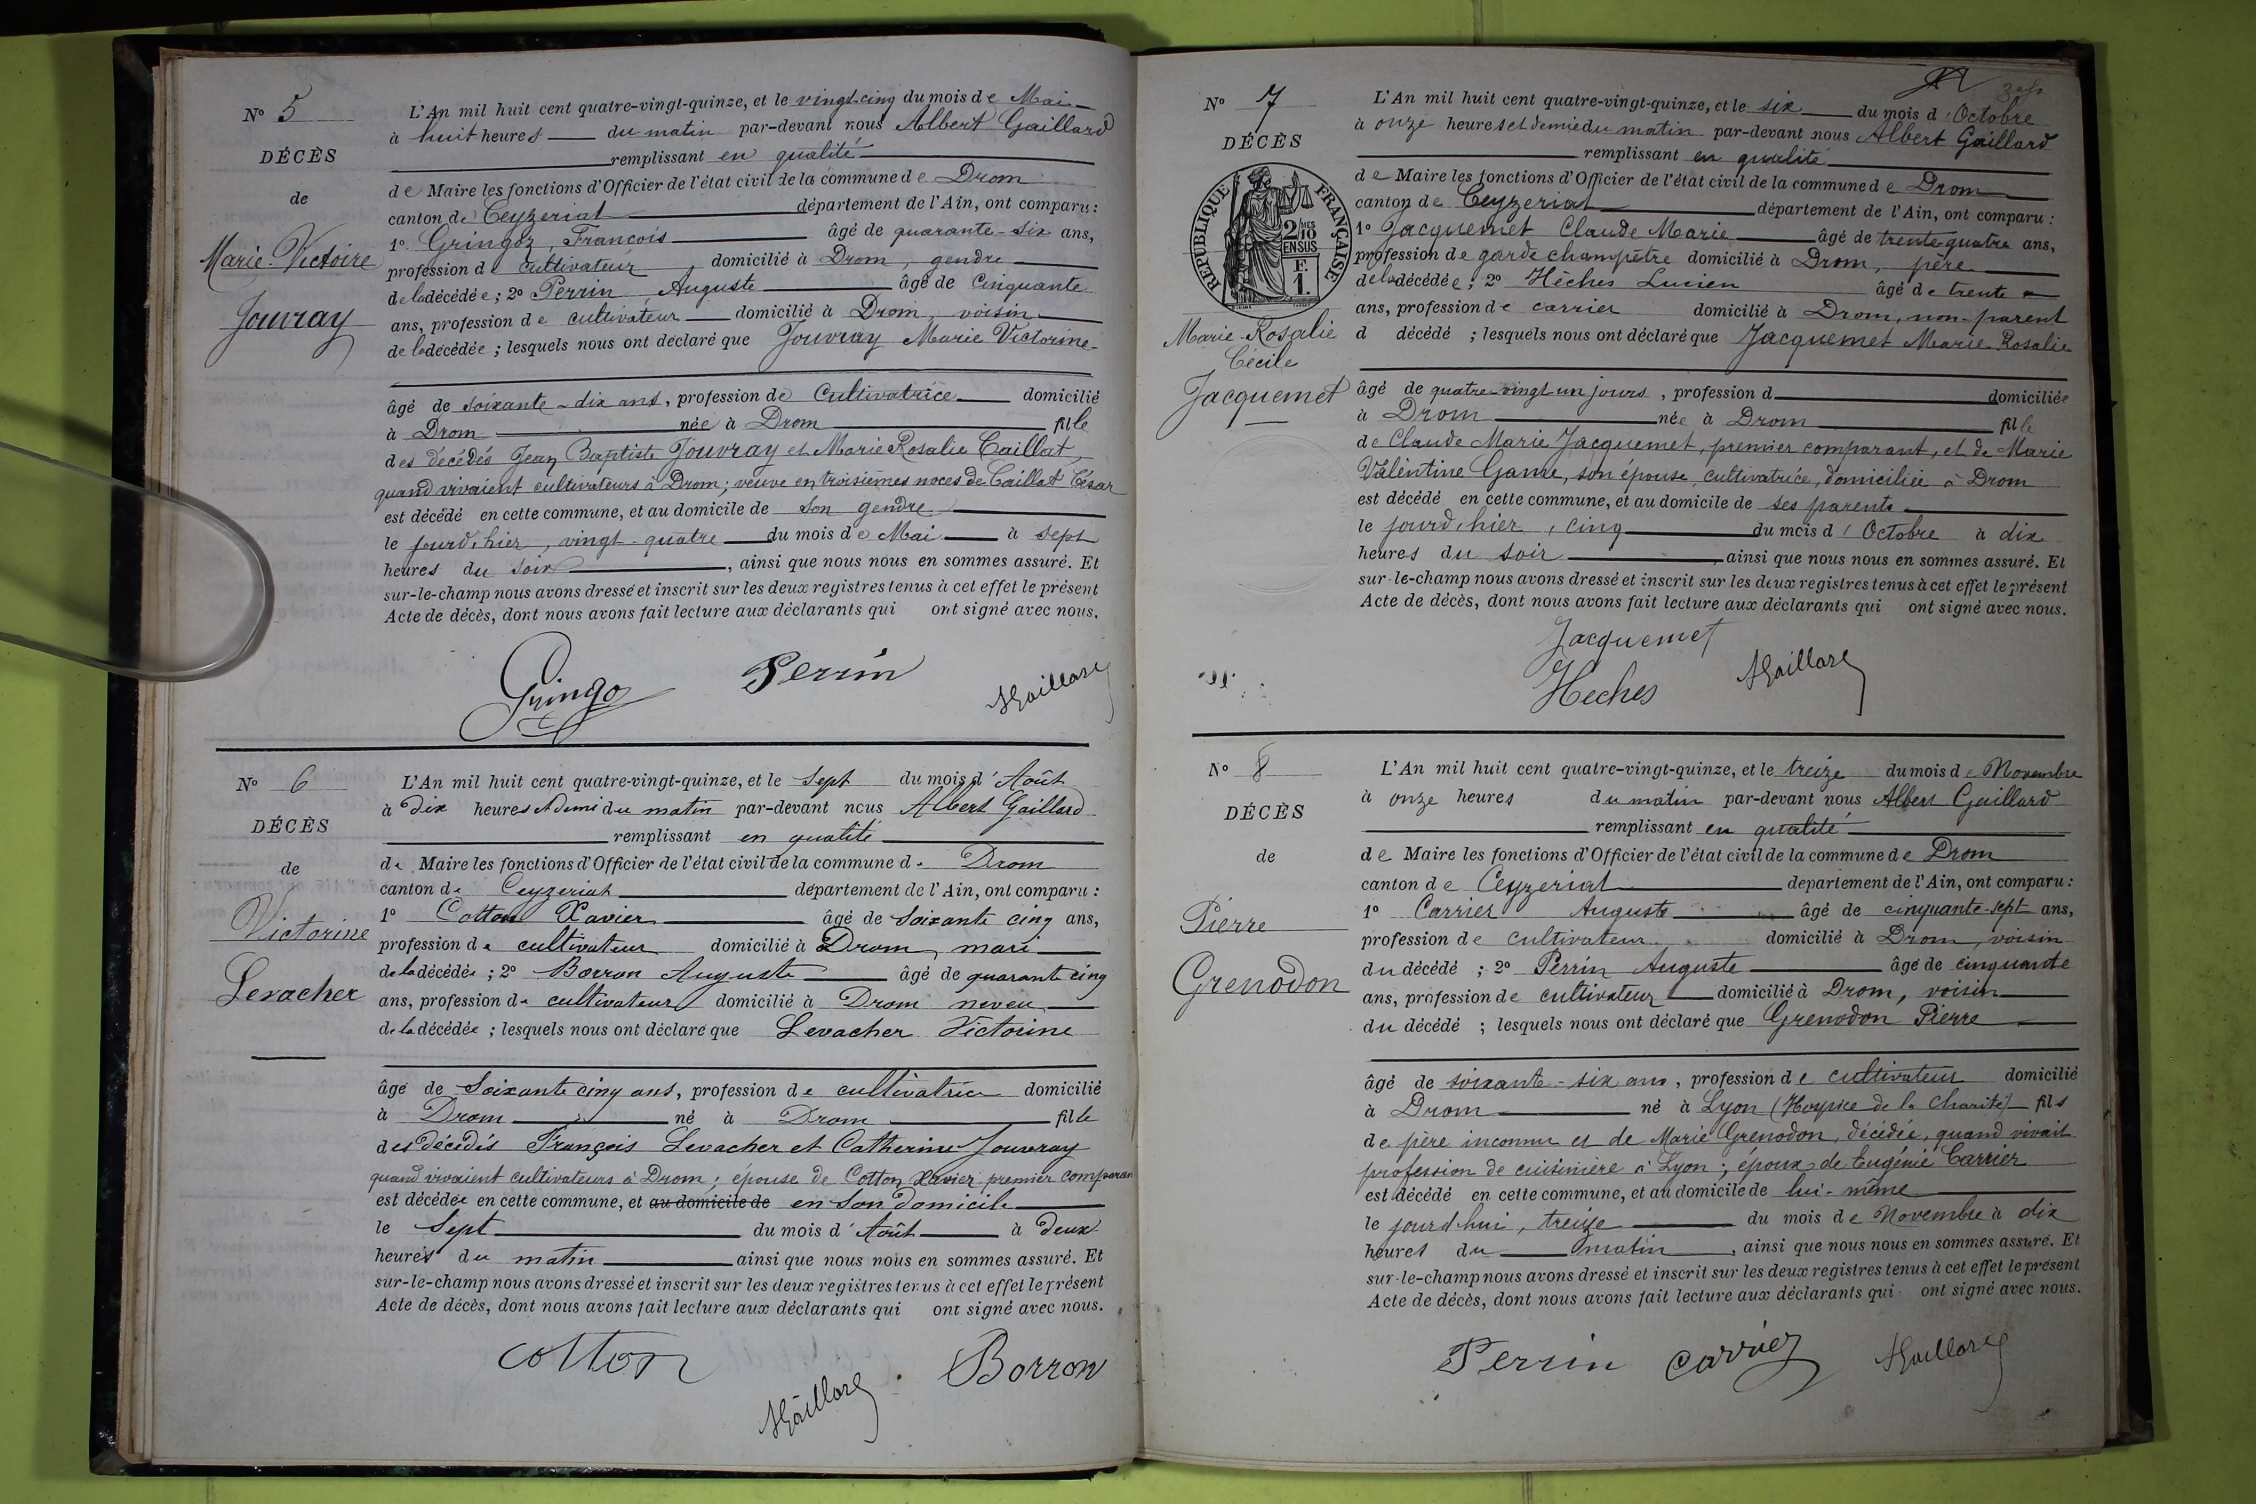 N° 5
DÉCÈS
de
Marie-Victoire
Jouvray
L'An mil huit cent quatre-vingt-quinze, et le vingt-cinq du mois de Mai
à huit heures du matin par-devant nous Albert Gaillard
remplissant en qualité
de Maire les fonctions d'Officier de l'état civil de la commune de Drom
canton de Ceyzeriat département de l'Ain, ont comparu :
1° Gringoz, François âgé de quarante-six ans,
profession de cultivateur domicilié à Drom, gendre
de la décédée ; 2° Perrin Auguste âgé de cinquante
ans, profession de cultivateur domicilié à Drom, voisin
de la décédée ; lesquels nous ont déclaré que Jouvray Marie Victorine
âgé de soixante-dix ans, profession de Cultivatrice domicilié
à Drom née à Drom fille
des décédés Jean Baptiste Jouvray et Marie Rosalie Caillat,
quand vivaient cultivateurs à Drom ; veuve en troisièmes noces de Caillat César
est décédé en cette commune, et au domicile de son gendre
le jourd'hier, vingt-quatre du mois de Mai à sept
heures du soir, ainsi que nous nous en sommes assuré. Et
sur-le-champ nous avons dressé et inscrit sur les deux registres tenus à cet effet le présent
Acte de décès, dont nous avons fait lecture aux déclarants qui ont signé avec nous.
Gringoz Perrin AGaillard
N° 6
DÉCÈS
de
Victorine
Levacher
L'An mil huit cent quatre-vingt-quinze, et le sept du mois d'Août
à dix heures et demi du matin par-devant nous Albert Gaillard
remplissant en qualité
de Maire les fonctions d'Officier de l'état civil de la commune de Drom
canton de Ceyzeriat département de l'Ain, ont comparu :
1° Cotton Xavier âgé de soixante cinq ans,
profession de cultivateur domicilié à Drom, mari
de la décédée ; 2° Borron Auguste âgé de quarante cinq
ans, profession de cultivateur domicilié à Drom neveu
de la décédée ; lesquels nous ont déclaré que Levacher Victorine
âgé de Soixante cinq ans, profession de cultivatrice domicilié
à Drom né à Drom fille
des décédés François Levacher et Catherine Jouvray
quand vivaient cultivateurs à Drom ; épouse de Cotton Xavier premier comparan
est décédée en cette commune, et au domicile de en son domicile
le Sept du mois d'Août à deux
heures du matin ainsi que nous nous en sommes assuré. Et
sur-le-champ nous avons dressé et inscrit sur les deux registres tenus à cet effet le présent
Acte de décès, dont nous avons fait lecture aux déclarants qui ont signé avec nous.
Cotton AGaillard Borron
N° 7
DÉCÈS
REPUBLIQUE FRANÇAISE
2/10 EN SUS
F. 1.
Marie-Rosalie
Cécile
Jacquemet
L'An mil huit cent quatre-vingt-quinze, et le six du mois d'Octobre
à onze heures et demie du matin par-devant nous Albert Gaillard
remplissant en qualité
de Maire les fonctions d'Officier de l'état civil de la commune de Drom
canton de Ceyzeriat département de l'Ain, ont comparu :
1° Jacquemet Claude Marie âgé de trente-quatre ans,
profession de garde champêtre domicilié à Drom, père
de la décédée ; 2° Hêches Lucien âgé de trente
ans, profession de carrier domicilié à Drom, non-parent
d décédé ; lesquels nous ont déclaré que Jacquemet Marie Rosalie
âgé de quatre-vingt un jours, profession d domiciliée
à Drom née à Drom fille
de Claude Marie Jacquemet, premier comparant, et de Marie
Valentine Game, son épouse, cultivatrice, domiciliée à Drom
est décédé en cette commune, et au domicile de ses parents
le jourd'hier, cinq du mois d'Octobre à dix
heures du soir, ainsi que nous nous en sommes assuré. Et
sur-le-champ nous avons dressé et inscrit sur les deux registres tenus à cet effet le présent
Acte de décès, dont nous avons fait lecture aux déclarants qui ont signé avec nous.
Jacquemet
Heches AGaillard
N° 8
DÉCÈS
de
Pierre
Grenodon
L'An mil huit cent quatre-vingt-quinze, et le treize du mois de Novembre
à onze heures du matin par-devant nous Albert Gaillard
remplissant en qualité
de Maire les fonctions d'Officier de l'état civil de la commune de Drom
canton de Ceyzeriat departement de l'Ain, ont comparu :
1° Carrier Auguste âgé de cinquante-sept ans,
profession de cultivateur domicilié à Drom, voisin
du décédé ; 2° Perrin Auguste âgé de cinquante
ans, profession de cultivateur domicilié à Drom, voisin
du décédé ; lesquels nous ont déclaré que Grenodon Pierre
âgé de soixante-six ans, profession de cultivateur domicilié
à Drom né à Lyon (Hospice de la Charité) fils
de père inconnu et de Marie Grenodon, décédée, quand vivait
profession de cuisinière à Lyon ; époux de Eugénie Carrier
est décédé en cette commune, et au domicile de lui-même
le jourd'hui, treize du mois de Novembre à dix
heures du matin, ainsi que nous nous en sommes assuré. Et
sur-le-champ nous avons dressé et inscrit sur les deux registres tenus à cet effet le présent
Acte de décès, dont nous avons fait lecture aux déclarants qui ont signé avec nous.
Perrin Carrier AGaillard